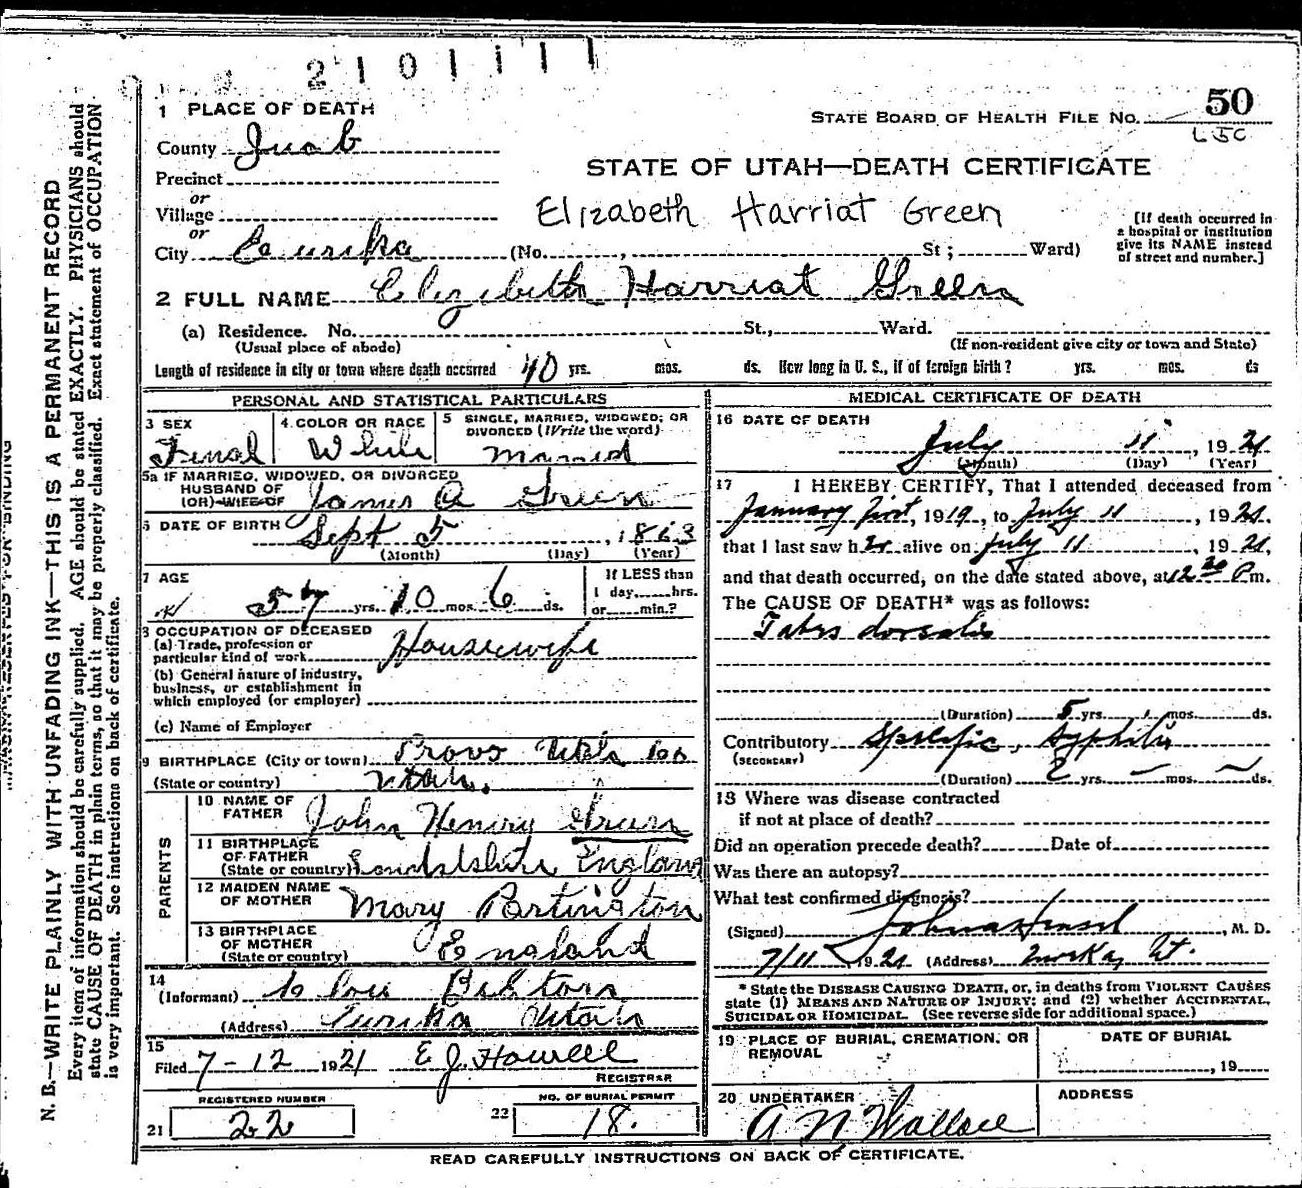 2 1 0 1 1 1 1
1 PLACE OF DEATH
STATE BOARD OF HEALTH FILE NO. 50
County Juab
STATE OF UTAH—DEATH CERTIFICATE
Precinct
or
Village
Elizabeth Harriat Green
[If death occurred in a hospital or institution give its NAME instead of street and number.]
or
City Eurika (No. , St; Ward)
2 FULL NAME Elizabeth Harriat Green
(a) Residence. No. St., Ward.
(Usual place of abode) (If non-resident give city or town and State)
Length of residence in city or town where death occurred 40 yrs. mos. ds. How long in U. S., if of foreign birth? yrs. mos. ds
PERSONAL AND STATISTICAL PARTICULARS
3 SEX Femal
4 COLOR OR RACE White
5 SINGLE, MARRIED, WIDOWED, OR DIVORCED (Write the word) Married
5a IF MARRIED, WIDOWED, OR DIVORCED
HUSBAND OF
(OR) WIFE OF James A Green
6 DATE OF BIRTH Sept 5, 1863
(Month) (Day) (Year)
7 AGE 57 yrs. 10 mos. 6 ds.
If LESS than
1 day hrs.
or min.?
8 OCCUPATION OF DECEASED
(a) Trade, profession or
particular kind of work Housewife
(b) General nature of industry,
business, or establishment in
which employed (or employer)
(c) Name of Employer
9 BIRTHPLACE (City or town) Provo Utah Co
(State or country) Utah.
PARENTS
10 NAME OF
FATHER John Henry Green
11 BIRTHPLACE
OF FATHER
(State or country) England
12 MAIDEN NAME
OF MOTHER Mary Partington
13 BIRTHPLACE
OF MOTHER
(State or country) England
14
(Informant)
(Address) Eurika Utah
15
Filed 7-12 1921 E J. Howell
REGISTRAR
REGISTERED NUMBER
21 22
NO. OF BURIAL PERMIT
22 18.
MEDICAL CERTIFICATE OF DEATH
16 DATE OF DEATH
July 11, 1921
(Month) (Day) (Year)
17 I HEREBY CERTIFY, That I attended deceased from
January first, 1919, to July 11, 1921.
that I last saw her alive on July 11, 1921,
and that death occurred, on the date stated above, at 12 20 P m.
The CAUSE OF DEATH* was as follows:
Tabes dorsalis
(Duration) 5 yrs. mos. ds.
Contributory Specific, Syphilis
(SECONDARY)
(Duration) yrs. — mos. ds.
18 Where was disease contracted
if not at place of death?
Did an operation precede death? Date of
Was there an autopsy?
What test confirmed diagnosis?
(Signed) , M. D.
7/11 1921 (Address)
* State the DISEASE CAUSING DEATH, or, in deaths from VIOLENT CAUSES
state (1) MEANS AND NATURE OF INJURY; and (2) whether ACCIDENTAL,
SUICIDAL OR HOMICIDAL. (See reverse side for additional space.)
19 PLACE OF BURIAL, CREMATION, OR
REMOVAL
DATE OF BURIAL
, 19
20 UNDERTAKER
A N Wallace
ADDRESS
READ CAREFULLY INSTRUCTIONS ON BACK OF CERTIFICATE.
N. B.—WRITE PLAINLY WITH UNFADING INK—THIS IS A PERMANENT RECORD
Every item of information should be carefully supplied. AGE should be stated EXACTLY. PHYSICIANS should
state CAUSE OF DEATH in plain terms, so that it may be properly classified. Exact statement of OCCUPATION
is very important. See instructions on back of certificate.